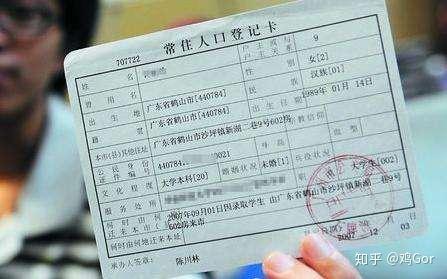 常住人口登记卡
707722
姓名
户主或与户主关系 9
曾用名 性别 女[2]
出生地 广东省鹤山市[440784] 民族 汉族[01]
籍贯 广东省鹤山市[440784] 出生日期 1989年01月14日
本市(县)其他住址 广东省鹤山市沙坪镇新湖二巷9号602房 宗教信仰
公民身份证件编号 440784 0021 身高
文化程度 大学本科[20] 婚姻状况 未婚[1] 兵役状况
服务处所 大学生[002]
何时由何地迁来本市(县) 2007年09月01日因录取学生 由广东省鹤山市沙坪镇新湖二巷9号602房来市
何时由何地迁来本址
承办人签章 陈川林 2007 12 03
知乎 @鸡Gor